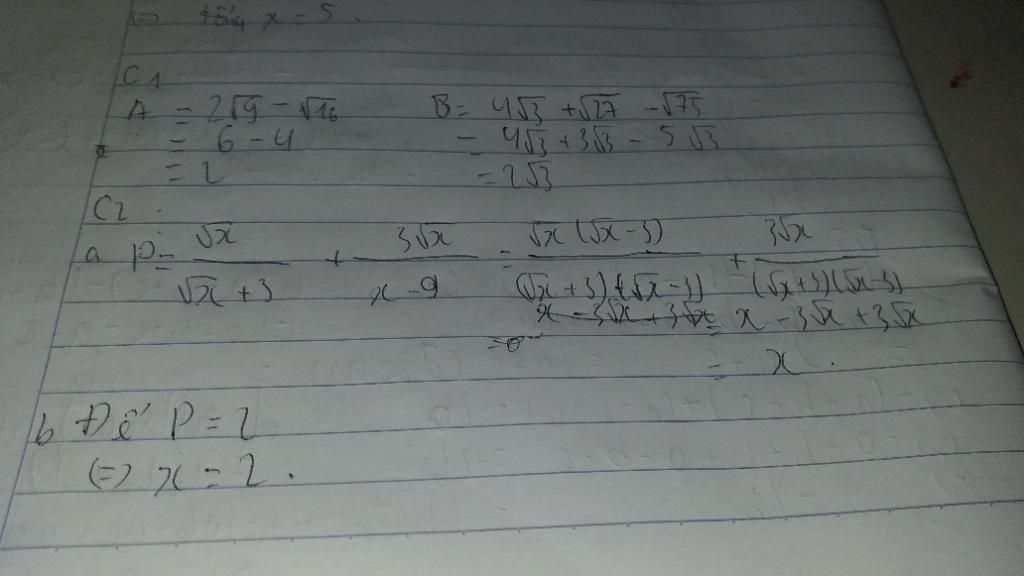 (=) tổng x = 5.
C1
A = 2√9 - √16 B = 4√3 + √27 - √75
= 6 - 4 = 4√3 + 3√3 - 5√3
= 2 = 2√3
C2
a P = √x / (√x + 3) + 3√x / (x - 9) = √x (√x - 3) / (√x + 3)(√x - 3) + 3√x / (√x + 3)(√x - 3)
x - 3√x + 3√x = x - 3√x + 3√x
= x.
b Để P = 2
(=) x = 2.